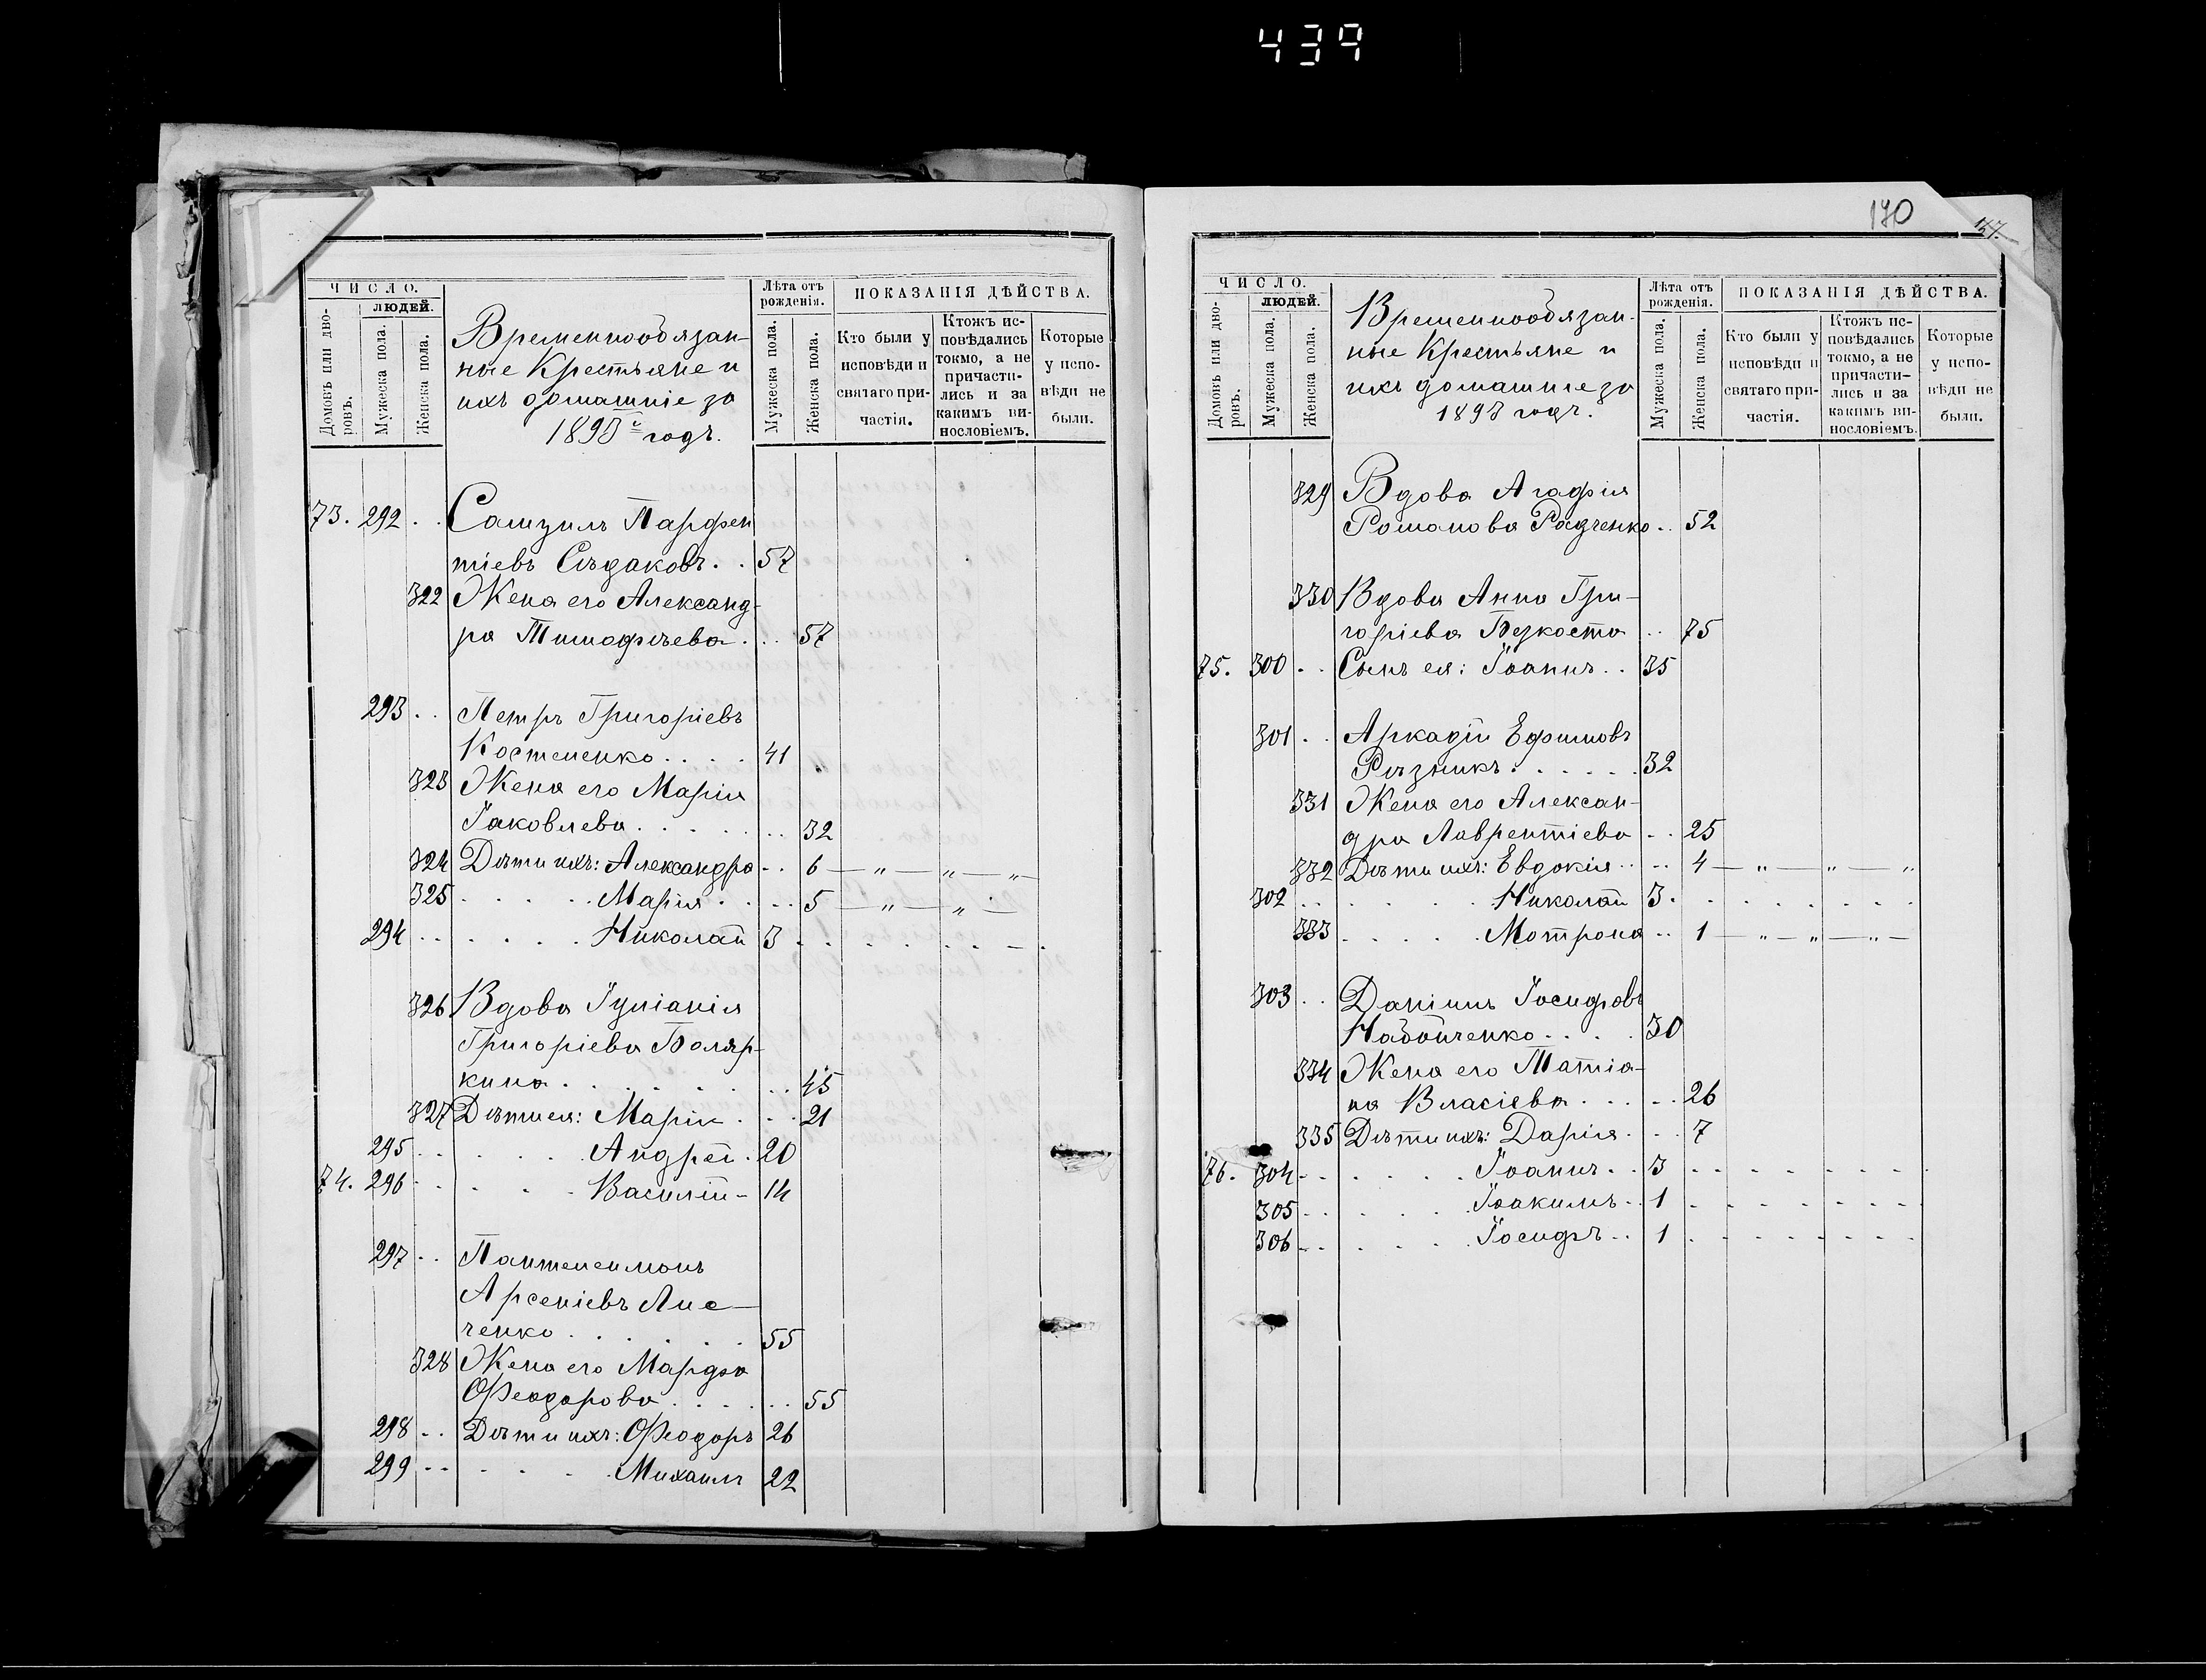 439
ЧИСЛО.
людей.
Домовъ или дворовъ.
Мужеска пола.
Женска пола.
Временнообязан-
ные Крестьяне и
ихъ домашніе за
1893й годъ.
Лѣта отъ рожденія.
Мужеска пола.
Женска пола.
ПОКАЗАНІЯ ДѢЙСТВА.
Кто были у исповѣди и святаго причастія.
Ктожъ исповѣдались токмо, а не причастились и за какимъ винословіемъ.
Которые у исповѣди не были.
73. 292 . . Самуилъ Парфен
тіевъ Сѣдаковъ . . 57
322 Жена его Александ-
ра Тимофѣева . . . 57
293 . . Петръ Григоріевъ
Костененко . . . . 41
323 Жена его Марія
Іаковлева . . . . . . . 32
324 Дѣти ихъ: Александра - . 6 — „ — „ — „ —
325 . . . . . Марія . . - . 5 — „ — „ —
294 . . . . . . Николай 3 . . . . . . . - .
326 Вдова Іуліанія
Григоріева Бояр-
кина . . . . . . . . . 45
327 Дѣти ея: Марія . - . 21
295 . . . . . . Андрей . 20
74. 296 . . . . . Василій - 14
297 . . Пантелеимонъ
Арсеніевъ Лис-
ченко . . . . . . . 55
328 Жена его Марфа
Ѳеодорова . . . . . . . 55
298 . . Дѣти ихъ: Ѳеодоръ 26
299 . . . . . . Михаилъ 22
170
147.
ЧИСЛО.
людей.
Домовъ или дворовъ.
Мужеска пола.
Женска пола.
Временнообязан-
ные Крестьяне и
ихъ домашніе за
1893 годъ.
Лѣта отъ рожденія.
Мужеска пола.
Женска пола.
ПОКАЗАНІЯ ДѢЙСТВА.
Кто были у исповѣди и святаго причастія.
Ктожъ исповѣдались токмо, а не причастились и за какимъ винословіемъ.
Которые у исповѣди не были.
329 Вдова Агафія
Романова Радченко . . 52
330 Вдова Анна Гри-
горіева . . 75
75. 300 . . Сынъ ея: Іоаннъ . . 35
301 . . Аркадій Ефимовъ
Рѣзникъ . . . . . . 32
331 Жена его Алексан-
дра Лаврентіева - . 25
332 Дѣти ихъ: Евдокія . . - . 4 — „ — „ — „
302 . . . . . . Николай 3 . . . . . . . .
333 . . . . . Мотрона - . 1 — „ — „ — „ —
303 . . Даніилъ Іосифовъ
Набойченко . . . . 30
334 Жена его Татіа-
на Власіева . . . - . 26
335 Дѣти ихъ: Дарія . . . 7
76. 304 . . . . . . Іоаннъ . . 3 . . . . . . . .
305 . . . . . . Іоакимъ . . 1 . . . . . . . .
306 . . . . . . Іосифъ . . 1 . . . . . . . .